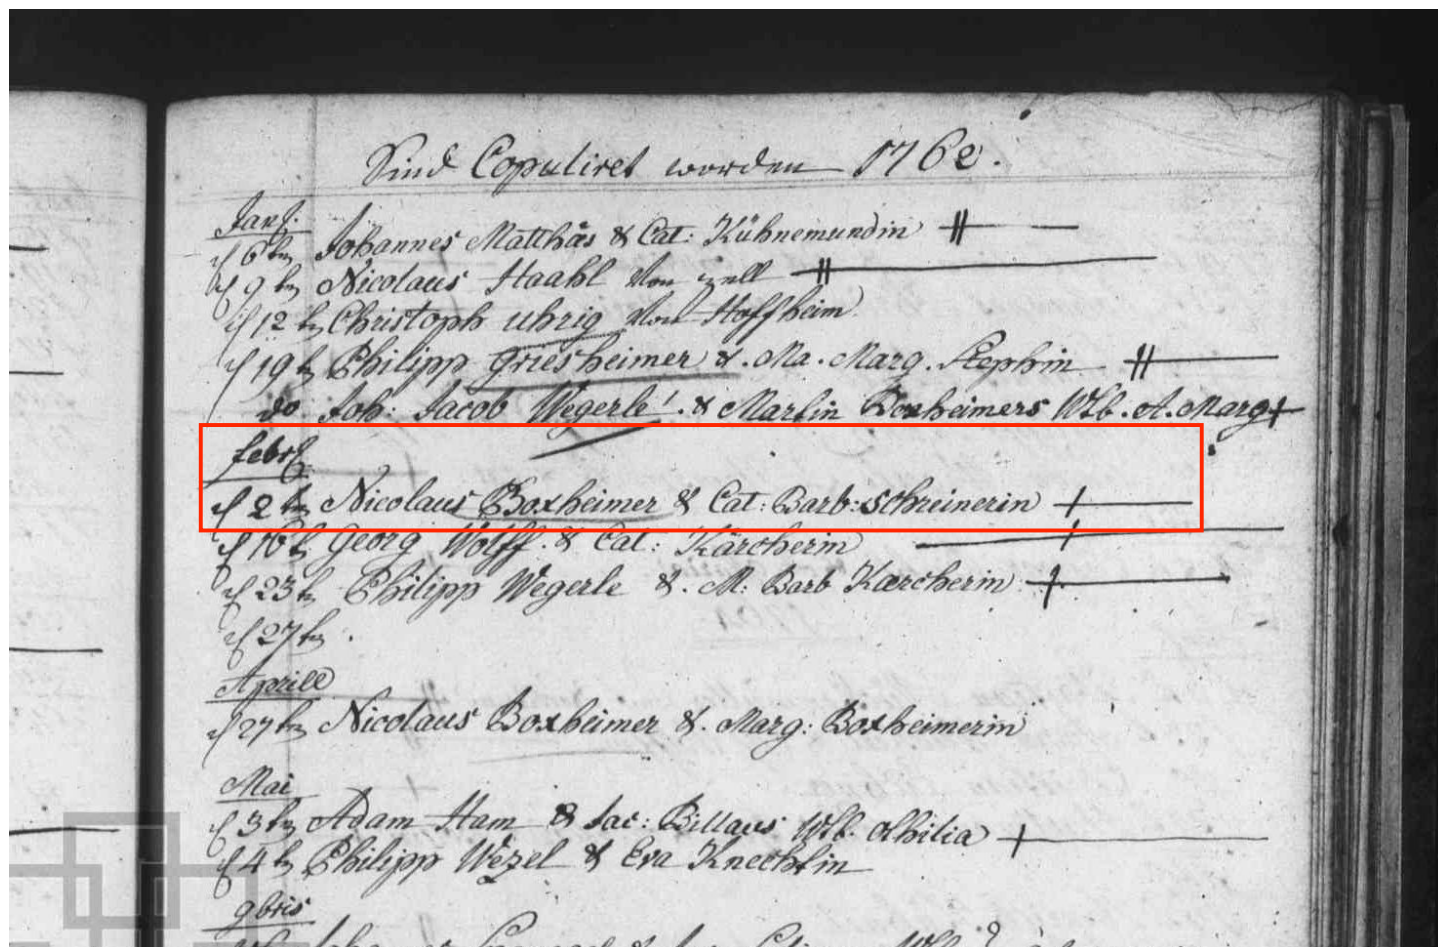 Sind Copuliret worden 1762.
Janr.
d 6ten Johannes Matthäs & Cat: Kühnemundin
d 9ten Nicolaus Haahl von zell
d 12ten Christoph Uhrig von Hoffheim
d 19ten Philipp Griesheimer & Ma. Marg. Stephin
do Joh: Jacob Wegerle & Martin Boxheimers Wtb. A. Marg
febr
d 2ten Nicolaus Boxheimer & Cat: Barb: Schreinerin
d 16ten Georg Wolff & Cat: Kärcherin
d 23ten Philipp Wegerle & M: Barb Kærcherin
d 27ten
Aprill
d 27ten Nicolaus Boxheimer & Marg: Boxheimerin
Mai
d 3ten Adam Ham & Jac: Billaus Wtb. Othilia
d 4ten Philipp Wezel & Eva Knechtin
9bris